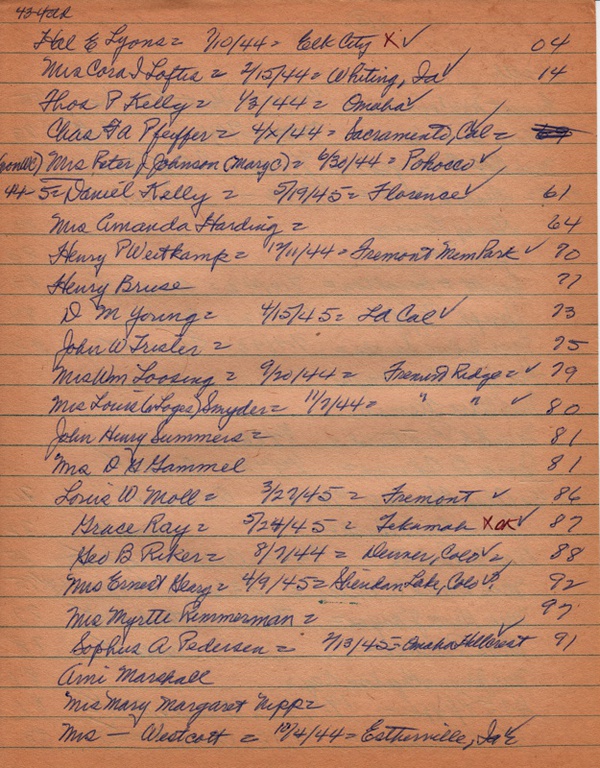 Hal E Lyons = 7/10/44 = Elk City X✓ 04
Mrs Cora I Loftis = 2/15/44 = Whiting, Ia ✓ 14
Thos P Kelly = 1/3/44 = Omaha ✓
Chas Pfeiffer = 4/x/44 = Sacramento, Cal =
Mrs Peter J. Johnson (Mary C) = 6/30/44 = Pohocco ✓
44-5 = Daniel Kelly = 5/19/45 = Florence ✓ 61
Mrs Amanda Harding = 64
Henry P Westkamp = 12/11/44 = Fremont Mem Park ✓ 70
Henry Bruse 77
D M Young = 4/15/45 = LA Cal ✓ 73
John W Trisler = 75
Mrs Wm Loosing = 9/20/44 = Fremont Ridge = ✓ 79
Mrs Louis Snyder = 11/7/44 = " " ✓ 80
John Henry Summers = 81
Mrs D G Gammel 81
Louis W. Moll = 3/27/45 = Fremont ✓ 86
Grace Ray = 5/24/45 = Tekamah X ok ✓ 87
Geo B Riker = 8/7/44 = Denver, Colo ✓ = 88
Mrs Ernest Geary = 4/9/45 = Sheridan Lake, Colo ✓ 92
Mrs Myrtle Rimmerman = 97
Sophus A Pedersen = 7/13/45 = Omaha Hillcrest ✓ 91
Ami Marshall
Mrs Mary Margaret Nipp =
Mrs — Westcott = 12/4/44 = Estherville, Ia ✓